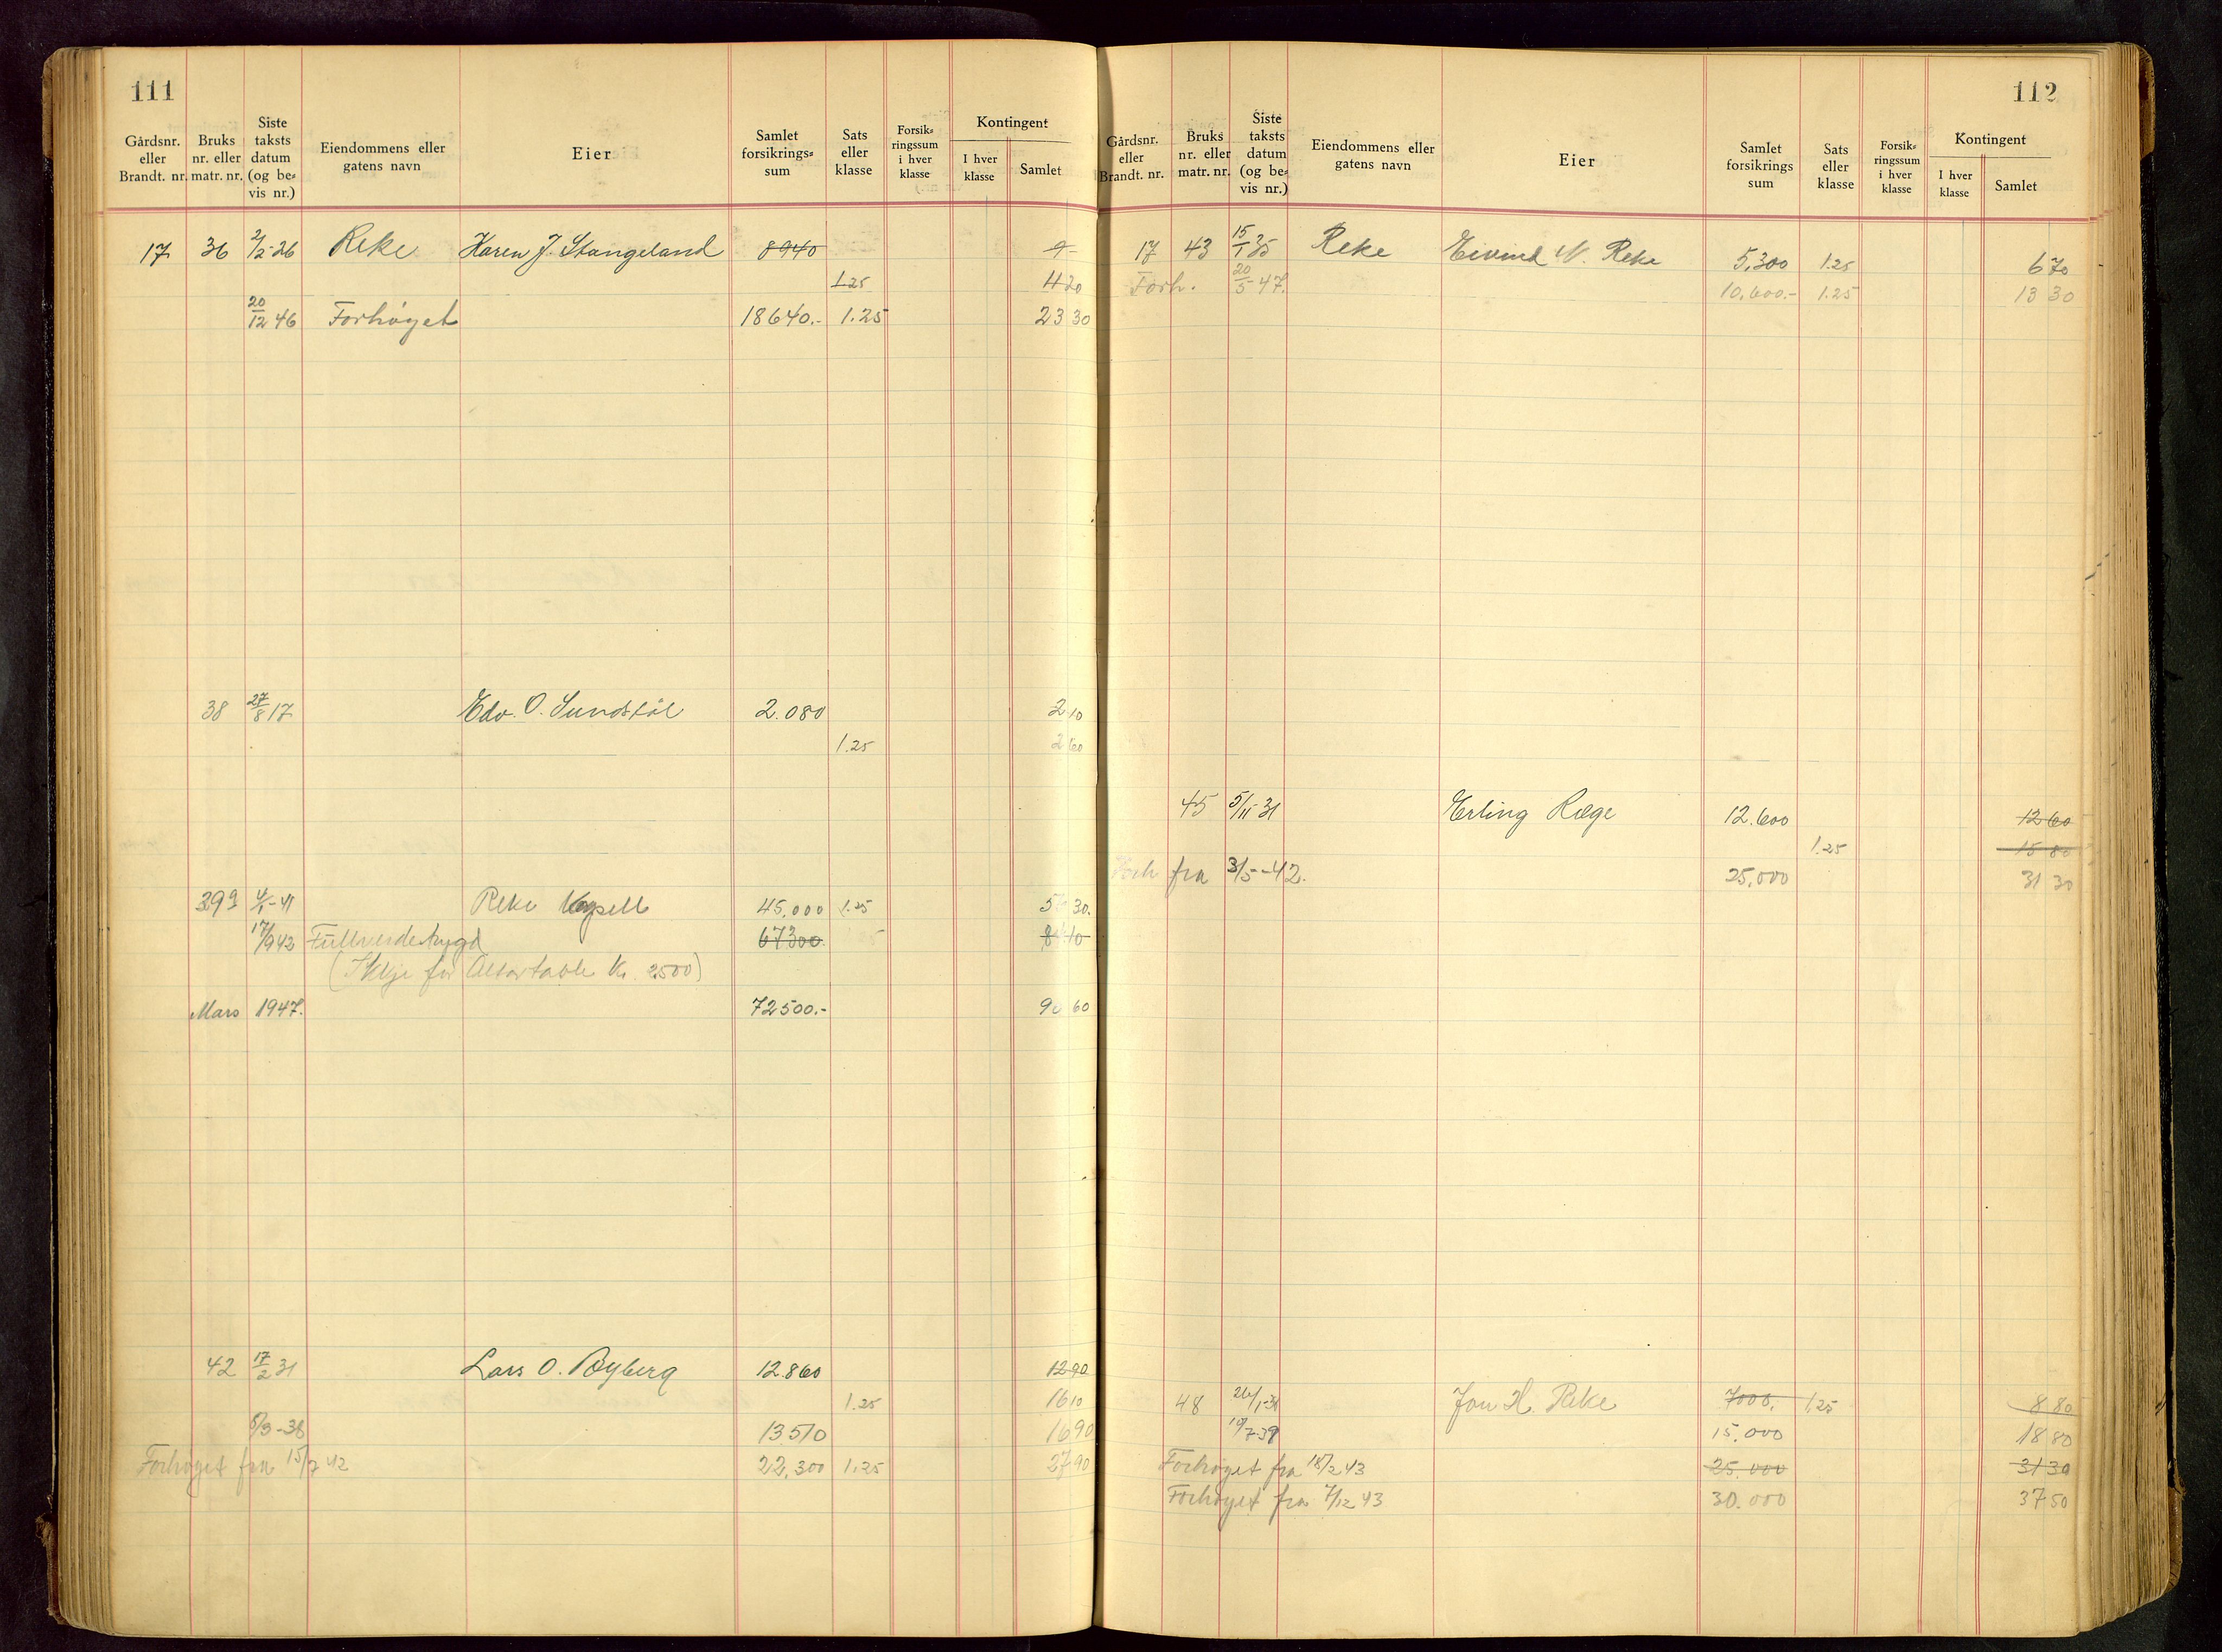 111
Gårdsnr. eller Brandt. nr. Bruks nr. eller matr. nr. Siste taksts datum (og be= vis nr.) Eiendommens eller gatens navn Eier Samlet forsikrings= sum Sats eller klasse Forsik= ringssum i hver klasse Kontingent I hver klasse Samlet
17 36 2/2-26 Reke Karen J. Stangeland 8940 9-
1.25 11 20
20/12 46 Forhöyet 18640.- 1.25 23 30
38 27/8 17 Edv. O. Sundstöl 2.080 2 10
1.25 2 60
39 4/1-41 Reke Kapell 45,000 1.25 30.
17/9 43 Fullverdetrygd 67300 10
(Ikkje for Altartavle Kr. 2500)
Mars 1947. 72500.- 90 60
42 17/2 31 Lars O. Byberg 12.860 12 90
1.25 16 10
8/3-38 13510 16 90
Forhöyet fra 15/7 42 22,300 1.25 27 90
112
Gårdsnr. eller Brandt. nr. Bruks nr. eller matr. nr. Siste taksts datum (og be= vis nr.) Eiendommens eller gatens navn Eier Samlet forsikrings sum Sats eller klasse Forsik= ringssum i hver klasse Kontingent I hver klasse Samlet
17 43 15/1 35 Reke Eivind N. Reke 5,300 1.25 6 70
Forh. 20/5-47. 10,600.- 1.25 13 30
45 5/11-31 Erling Ræge 12.600 12 60
1.25 15 80
Forh fra 3/5-42. 25,000 31 30
48 26/1-31 Jon H. Reke 7000. 1.25 8 80
10/7-39 15.000 18 80
Forhöyet fra 18/2 43 25.000 31 30
Forhöyet fra 7/12 43 30.000 37 50